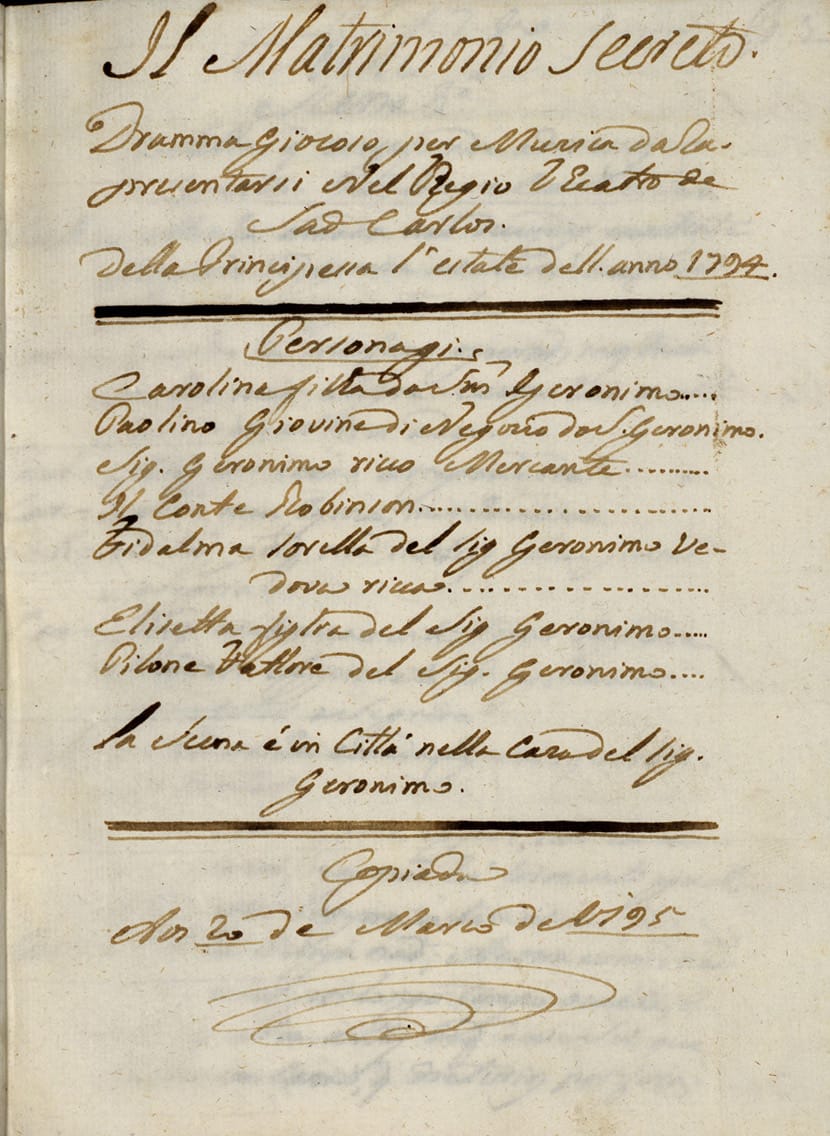 Il Matrimonio Secreto.
Dramma Giocoso, per Musica da Ra-
presentarsi Nel Regio Teatro de
Saõ Carlos.
della Principessa l'estate dell. anno 1794.
Personagi.
Carolina filla do Geronimo.....
Paolino Giovine di Negozio do S. Geronimo.
Sig. Geronimo ricco Mercante.........
Il Conte Robinson.........................
Fidalma sorella del sig Geronimo Ve-
dova ricca......................
Elisetta figlia del Sig Geronimo.....
Pilone Fattore del Sig. Geronimo....
la Scena é in Cittá nella Casa del sig.
Geronimo.
Copiada
Aos 20 de Marco de 1795